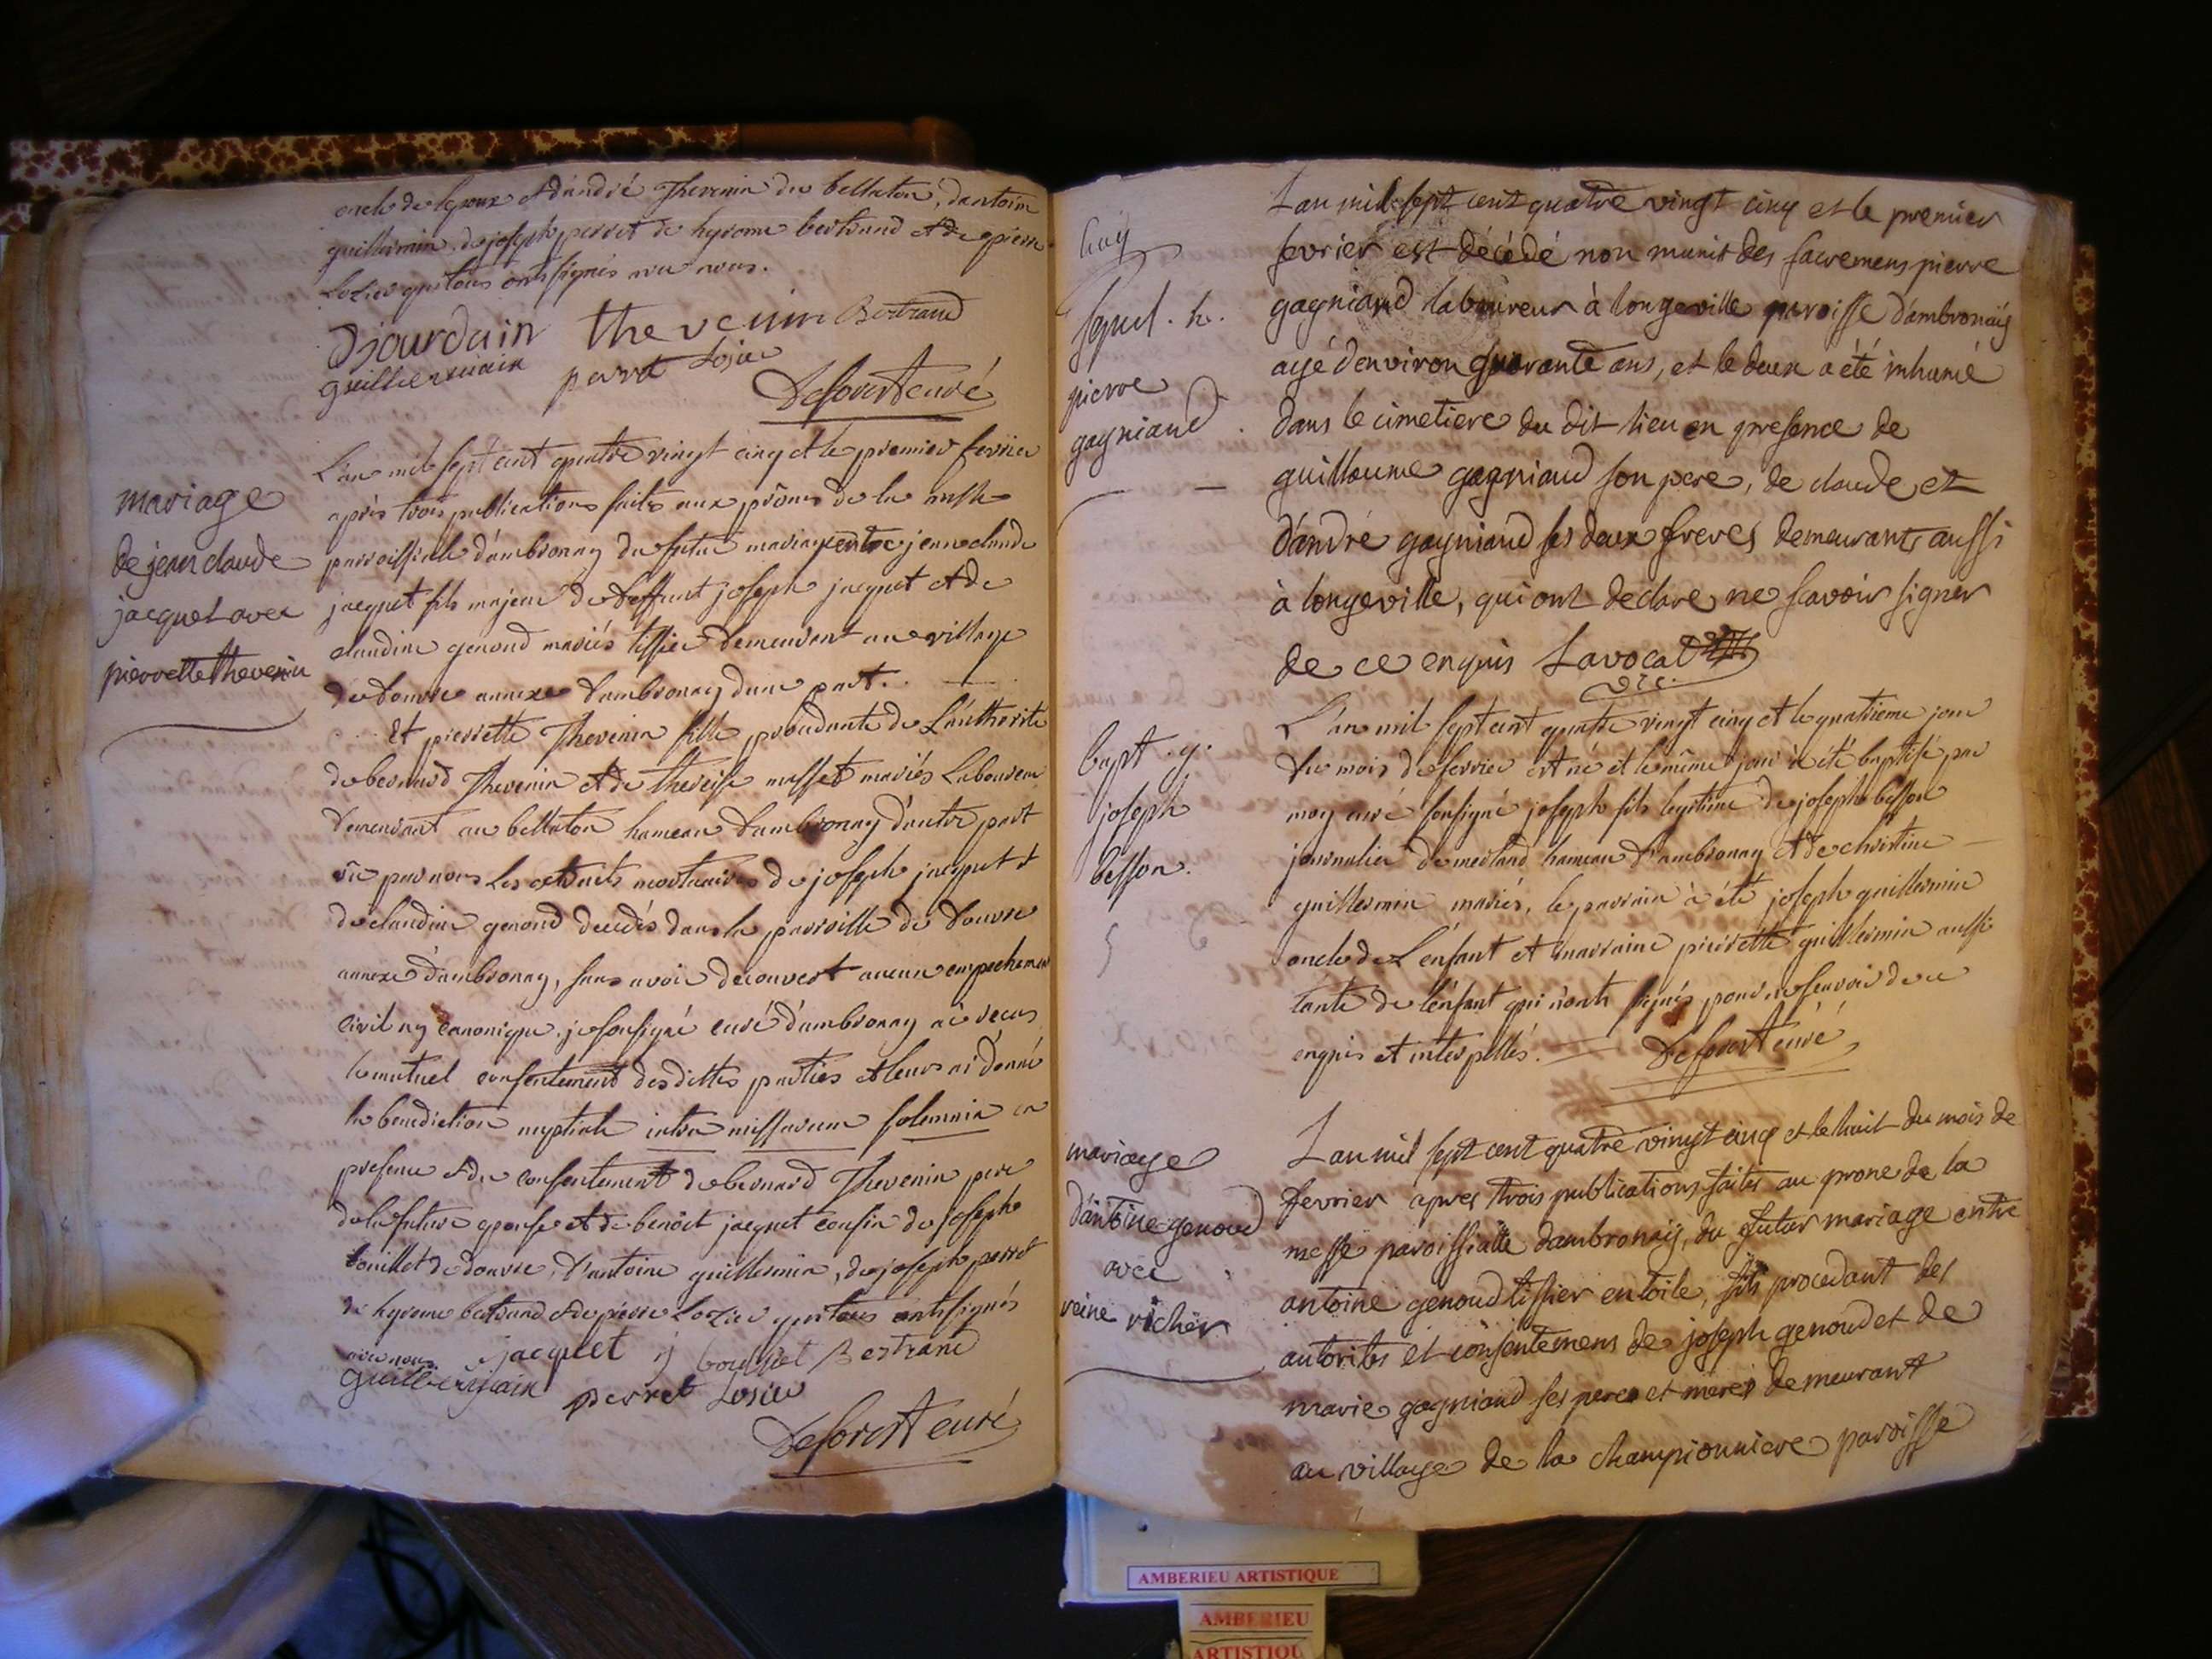 oncle de lepoux et d'andré Thevenin du bellaton, dantoine
guillermin, de joseph perret de hyrome bertrand et de pierre
Lozier qui tous onts signés avec nous.
Djourdain thevenin Bertrand
guilliermain perret Losier
Deforest curé
mariage
de jean claude
jacquet avec
pierrette thevenin
L'an mil sept cent quatre vingt cinq et le premier fevrier
après trois publications faites aux prônes de la messe
parroissiale d'ambronay du futur mariage entre jean claude
jacquet fils majeur de deffunt joseph jacquet et de
claudine genoud mariés tissier demeurant au village
de douvre annexe d'ambronay d'une part.
Et pierrette Thevenin fille procedante de L'authorité
de bernard Thevenin et de thereise masset mariés Laboureur
demeurant au bellaton hameau d'ambronay d'autre part
vu par nous Les extraits mortuaires de joseph jacquet et
de claudine genoud decedés dans la parroisse de douvre
annexe d'ambronay, sans avoir decouvert aucun empechement
civil ny canonique. je soussigné curé d'ambronay ai recus
le mutuel consentement des dittes parties et leurs ai donné
la benediction nuptiale intra missarum solemnia en
presence et du consentement de bernard Thevenin pere
de la future epouse et de benoit jacquet cousin de joseph
bouillet de douvre, d'antoine guillermin, de joseph perret
de hyrome bertrand et de pierre Lozier qui tous onts signés
avec nous. jacquet j bouilliet Bertrand
guilliermain perret Losier
Deforest curé
sepul. h.
pierre
gagniaud
L'an mil sept cent quatre vingt cinq et le premier
fevrier est décédé non munit des sacremens pierre
gagniaud laboureur à longeville paroisse d'ambronay
agé d'environ quarante ans, et le deux a été inhumé
dans le cimetiere du dit lieu en presence de
guillaume gagniaud son pere, de claude et
d'andré gagniaud ses deux freres demeurants aussi
à longeville, qui ont declare ne savoir signer
de ce enquis Lavocat
vic.
bapt. g.
joseph
besson.
L'an mil sept cent quatre vingt cinq et le quatrieme jour
du mois de fevrier est né et le même jour à été baptisé par
moy curé sousigné joseph fils legitime de joseph besson
journalier de merland hameau d'ambronay et de christine
guillermin mariés, le parrain à été joseph guillermin
oncle de L'enfant et marraine pierrette guillermin aussi
tante de l'enfant qui n'onts signés pour ne scavoir de ce
enquis et interpellés. Deforest curé
mariage
d'antoine genoud
avec
reine richer
L'an mil sept cent quatre vingt cinq et le huit du mois de
fevrier apres trois publications faites au prone de la
messe paroissialle dambronay, du futur mariage entre
antoine genoud tissier en toile, fils procedant des
autorités et consentemens de joseph genoud et de
marie gagniaud ses peres et meres demeurant
au village de la championniere paroisse
AMBERIEU ARTISTIQUE
AMBERIEU
ARTISTIQU